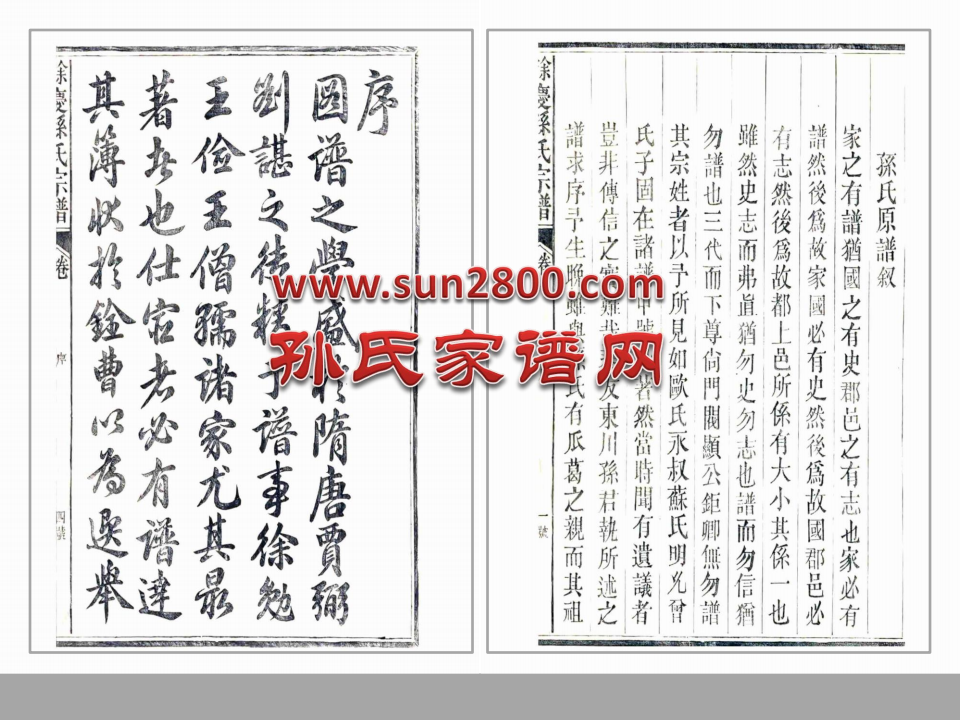 序
圖譜之學盛於隋唐賈弼
劉諶之俦精于譜事徐勉
王儉王僧孺諸家尤其最
著者也仕宦者必有譜達
其簿狀於銓曹以為選舉
餘慶孫氏宗譜
卷
序
四號
www.sun2800.com
孙氏家谱网
餘慶孫氏宗譜
卷
一號
孫氏原譜叙
家之有譜猶國之有史郡邑之有志也家必有
譜然後爲故家國必有史然後爲故國郡邑必
有志然後爲故都上邑所係有大小其係一也
雖然史志而弗直猶勿史勿志也譜而勿信猶
勿譜也三代而下尊尙門閥顯公鉅卿無勿譜
其宗姓者以予所見如歐氏永叔蘇氏明允曾
氏子固在諸譜中號 著然當時聞有遺議者
豈非傳信之 難哉 友東川孫君執所述之
譜求序予生晚雖與孫氏有瓜葛之親而其祖